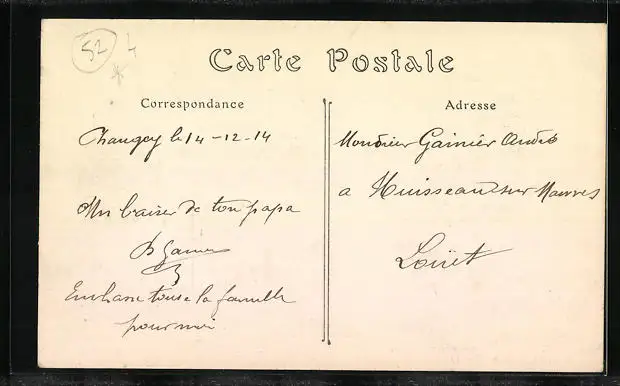 52 4
Carte Postale
Correspondance
Adresse
le 14-12-14
Monsieur Garnier André
Un baiser de ton papa
a Huisseau sur Mauves
Loiret
Embrasse toute la famille
pour moi